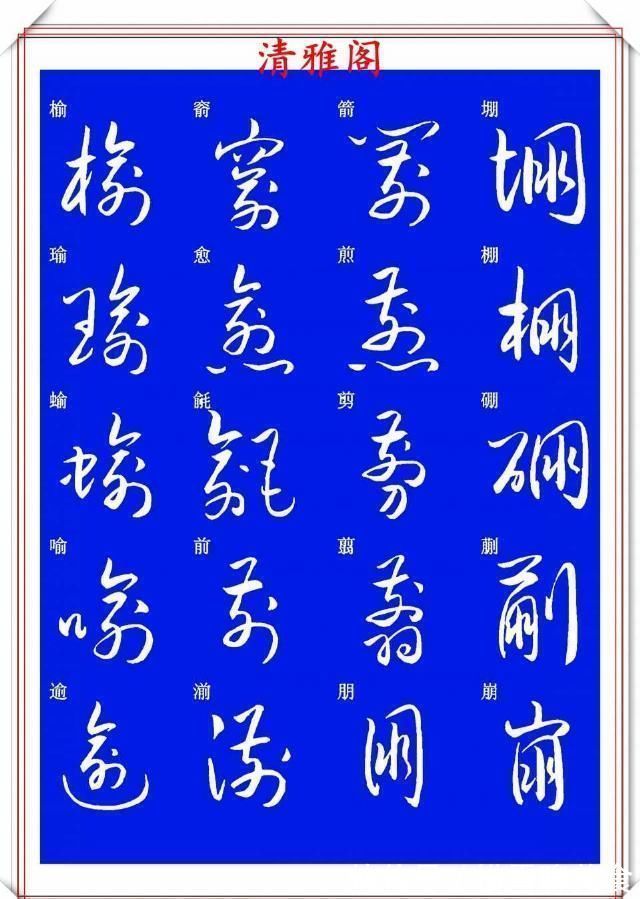 清雅阁
榆 窬 箭 堋
瑜 愈 煎 棚
蝓 毹 剪 硼
喻 前 翦 蒯
逾 湔 朋 崩